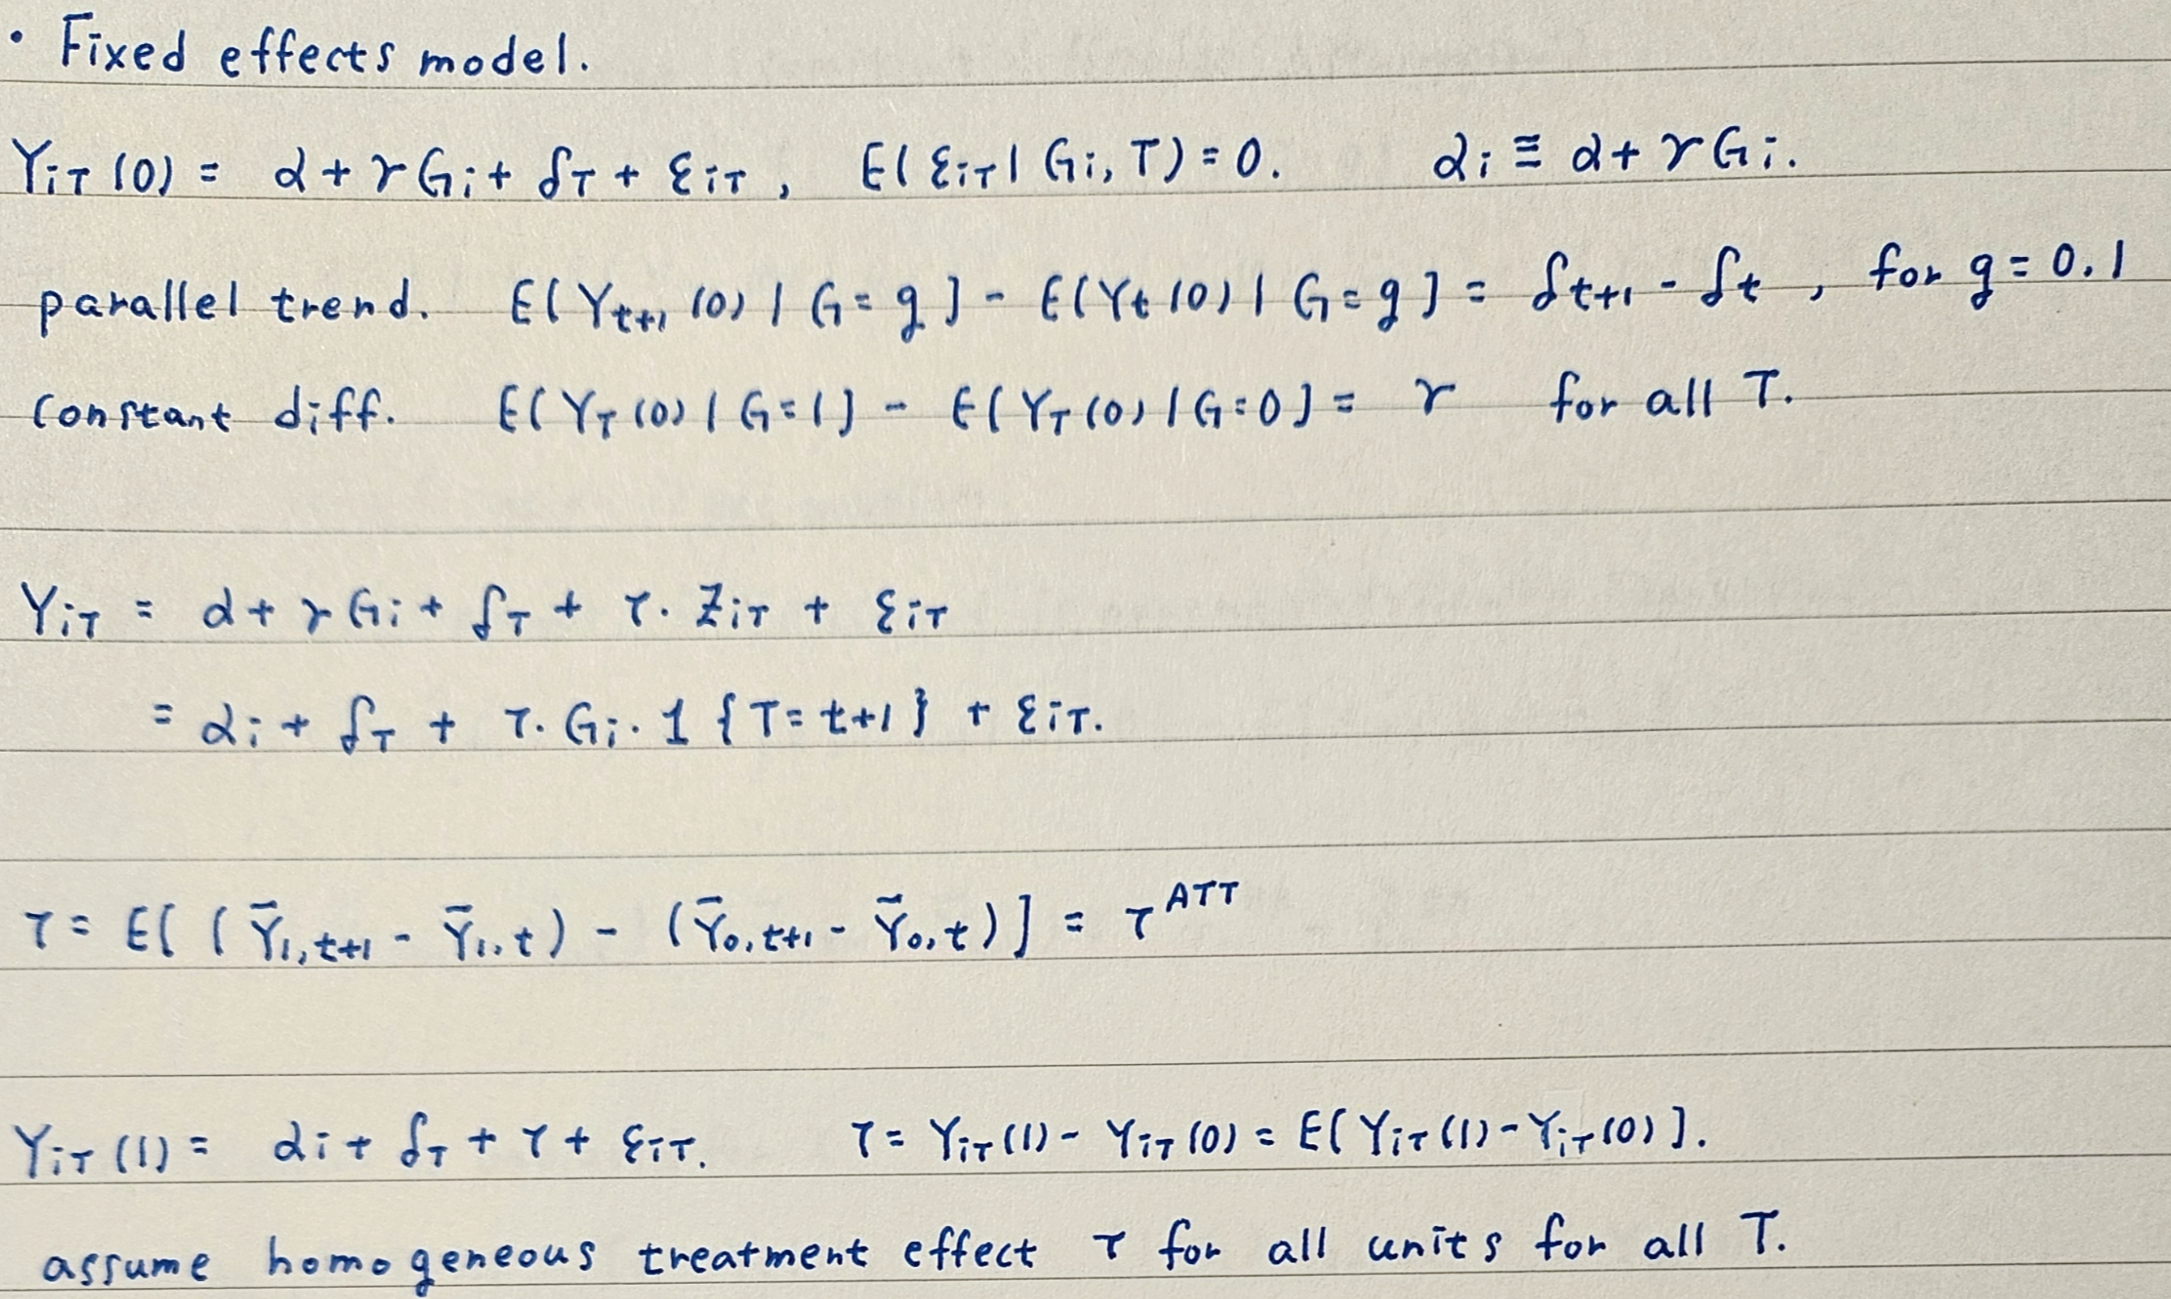 • Fixed effects model.
Y_{iT}(0) = α + γG_i + δ_T + ε_{iT}, E(ε_{iT} | G_i, T) = 0. α_i ≡ α + γG_i.
parallel trend. E[Y_{t+1}(0) | G=g] - E[Y_t(0) | G=g] = δ_{t+1} - δ_t, for g = 0.1
constant diff. E[Y_T(0) | G=1] - E[Y_T(0) | G=0] = γ for all T.
Y_{iT} = α + γG_i + δ_T + τ·Z_{iT} + ε_{iT}
= α_i + δ_T + τ·G_i·1{T=t+1} + ε_{iT}.
τ = E[(Ȳ_{1,t+1} - Ȳ_{1,t}) - (Ȳ_{0,t+1} - Ȳ_{0,t})] = τ^{ATT}
Y_{iT}(1) = α_i + δ_T + τ + ε_{iT}. τ = Y_{iT}(1) - Y_{iT}(0) = E[Y_{iT}(1) - Y_{iT}(0)].
assume homogeneous treatment effect τ for all units for all T.